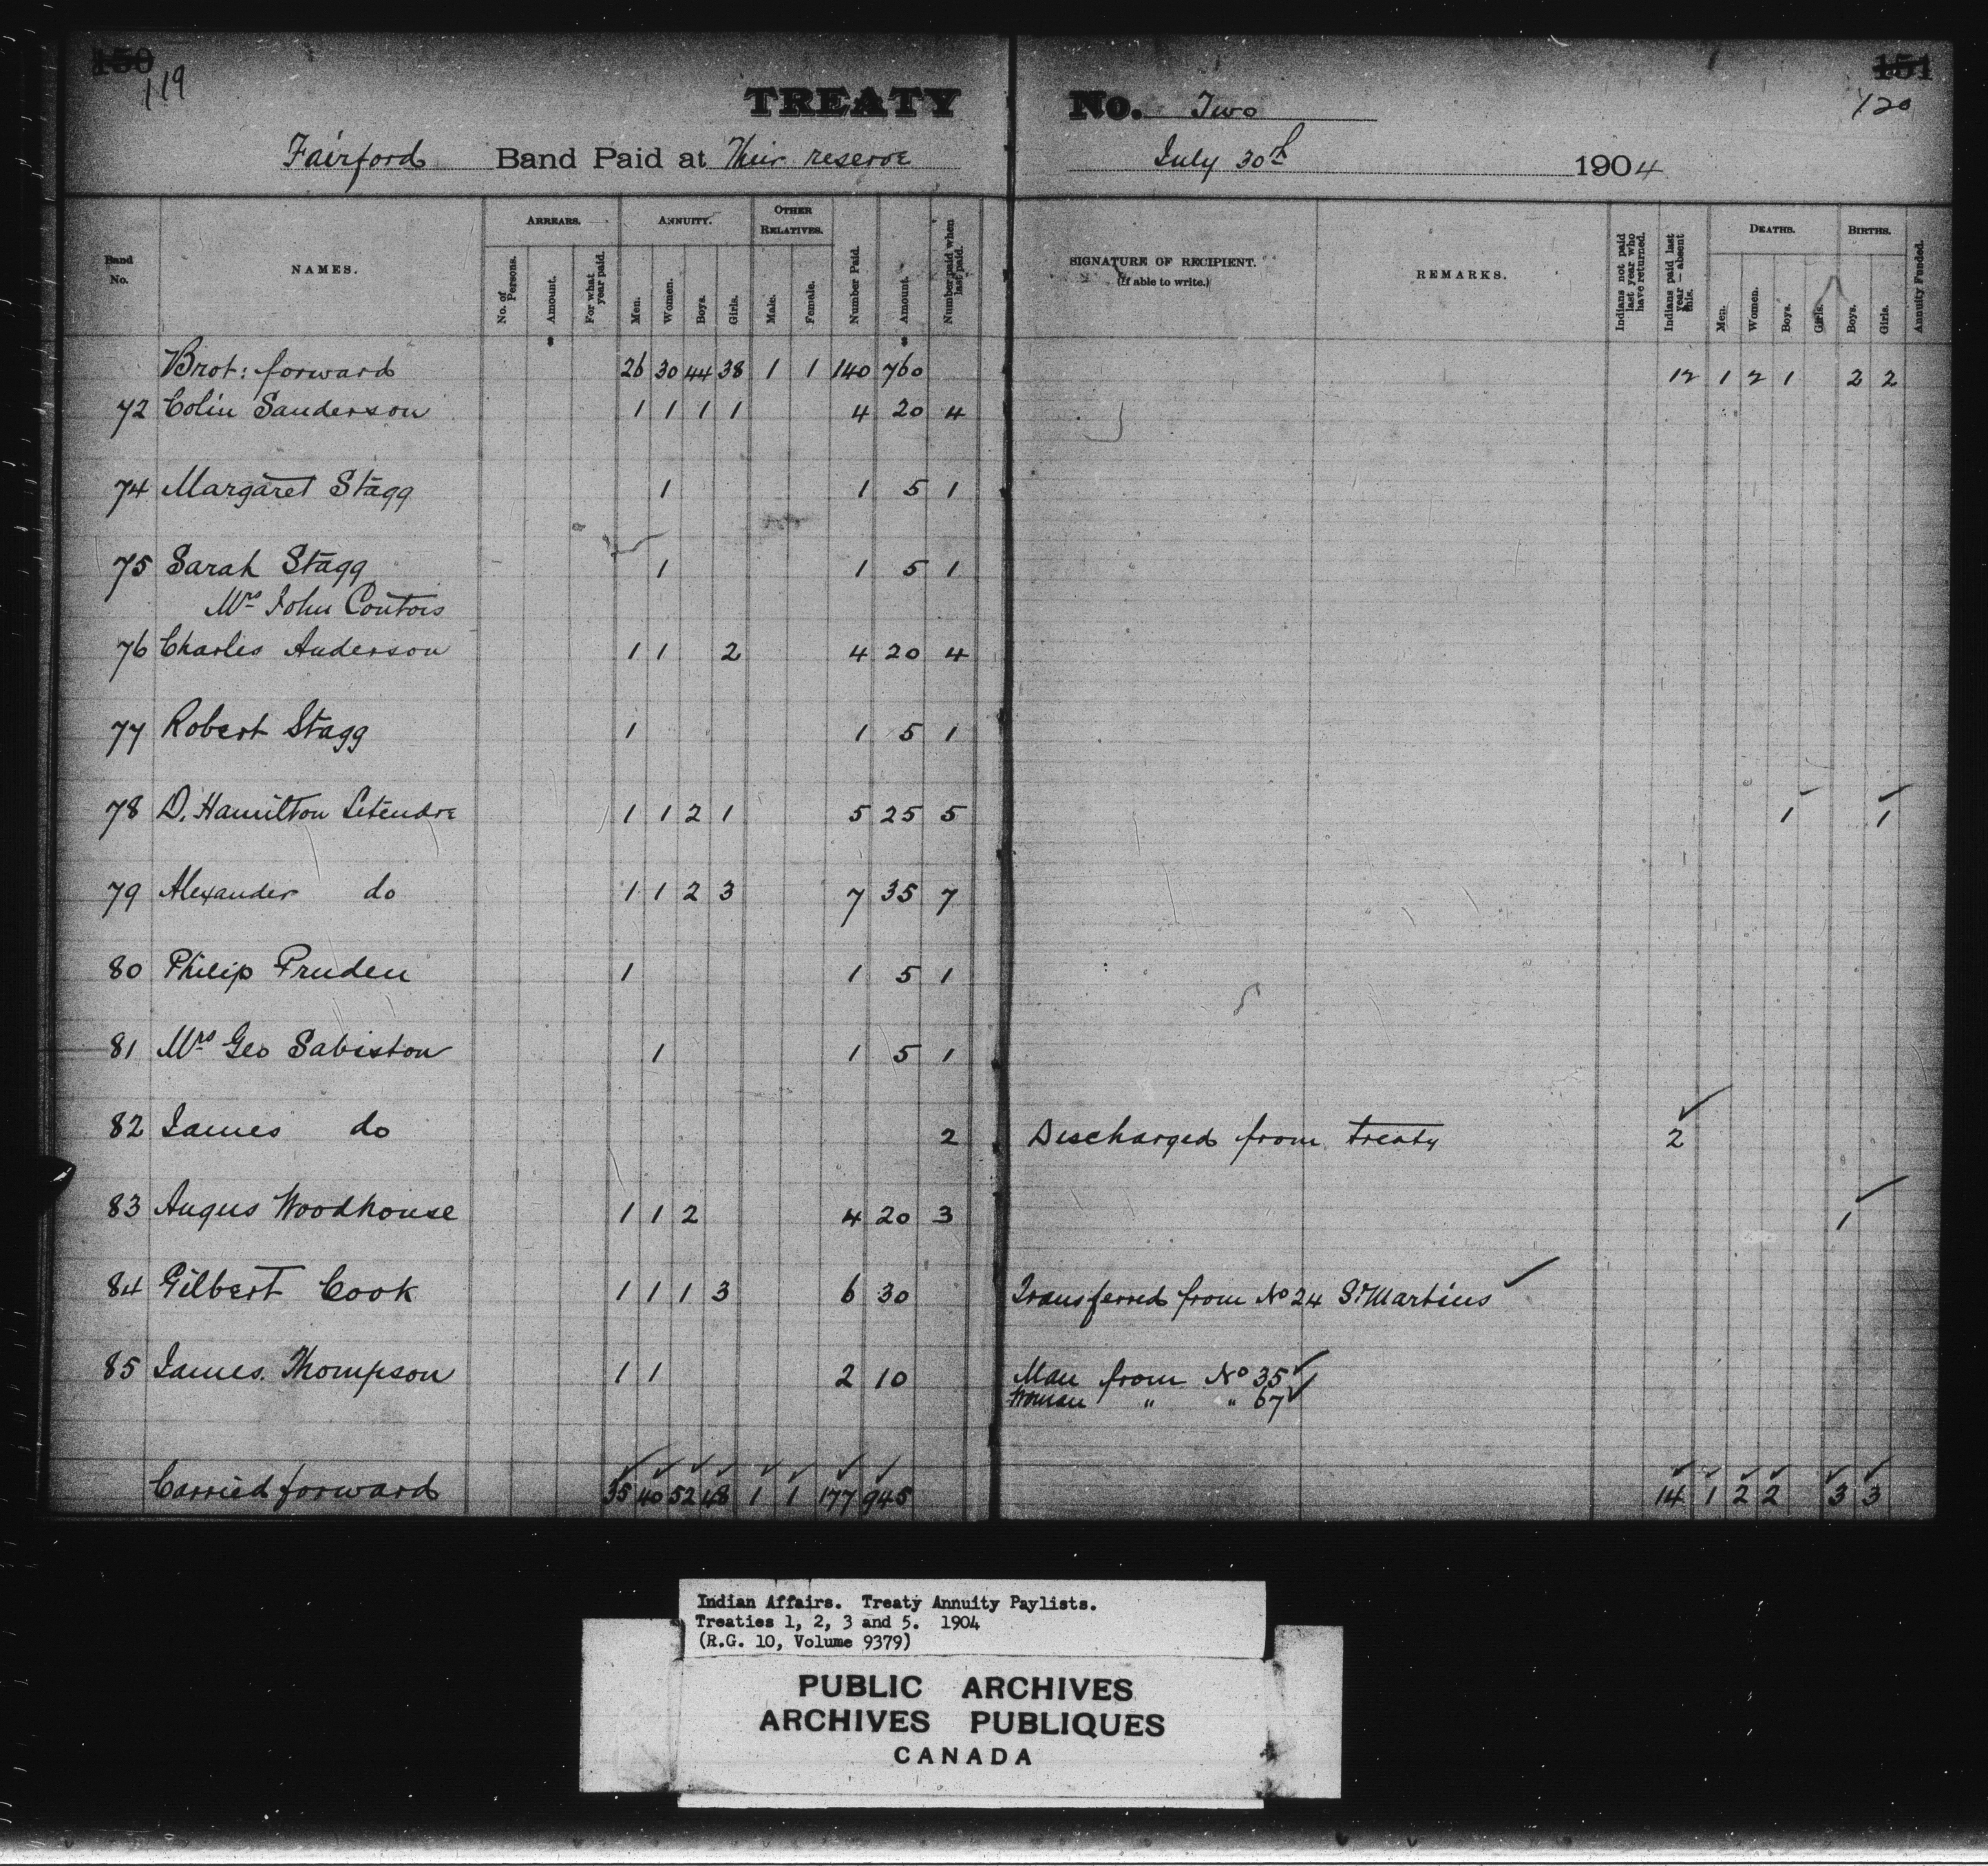 150 151
119 120
TREATY No. Two
Fairford Band Paid at Their reserve July 30th 1904
Band No. NAMES. ARREARS. No. of Persons. Amount. For what year paid. ANNUITY. Men. Women. Boys. Girls. OTHER RELATIVES. Male. Female. Number Paid. Amount. Number paid when last paid. SIGNATURE OF RECIPIENT. (If able to write.) REMARKS. Indians not paid last year who have returned. Indians paid last year — absent this. DEATHS. Men. Women. Boys. Girls. BIRTHS. Boys. Girls. Annuity Funded.
Brot: forward 26 30 44 38 1 1 140 760 12 1 2 1 2 2
72 Colin Sanderson 1 1 1 1 4 20 4
74 Margaret Stagg 1 1 5 1
75 Sarah Stagg 1 1 5 1
Mrs John Contois
76 Charles Anderson 1 1 2 4 20 4
77 Robert Stagg 1 1 5 1
78 D. Hamilton Letendre 1 1 2 1 5 25 5 1 1
79 Alexander do 1 1 2 3 7 35 7
80 Philip Pruden 1 1 5 1
81 Mrs Geo Sabiston 1 1 5 1
82 James do 2 Discharged from treaty 2
83 Angus Woodhouse 1 1 2 4 20 3 1
84 Gilbert Cook 1 1 1 3 6 30 Transferred from No 24 St Martins
85 James Thompson 1 1 2 10 Man from No 35
Woman " " 67
Carried forward 35 40 52 48 1 1 177 945 14 1 2 2 3 3
Indian Affairs. Treaty Annuity Paylists.
Treaties 1, 2, 3 and 5. 1904
(R.G. 10, Volume 9379)
PUBLIC ARCHIVES
ARCHIVES PUBLIQUES
CANADA